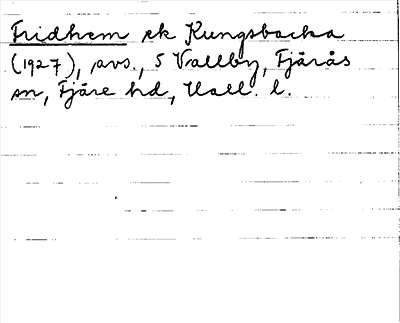 Fridhem ek Kungsbacka
(1927), avs., 5 Vallby, Fjärås
sn, Fjäre hd, Hall. l.